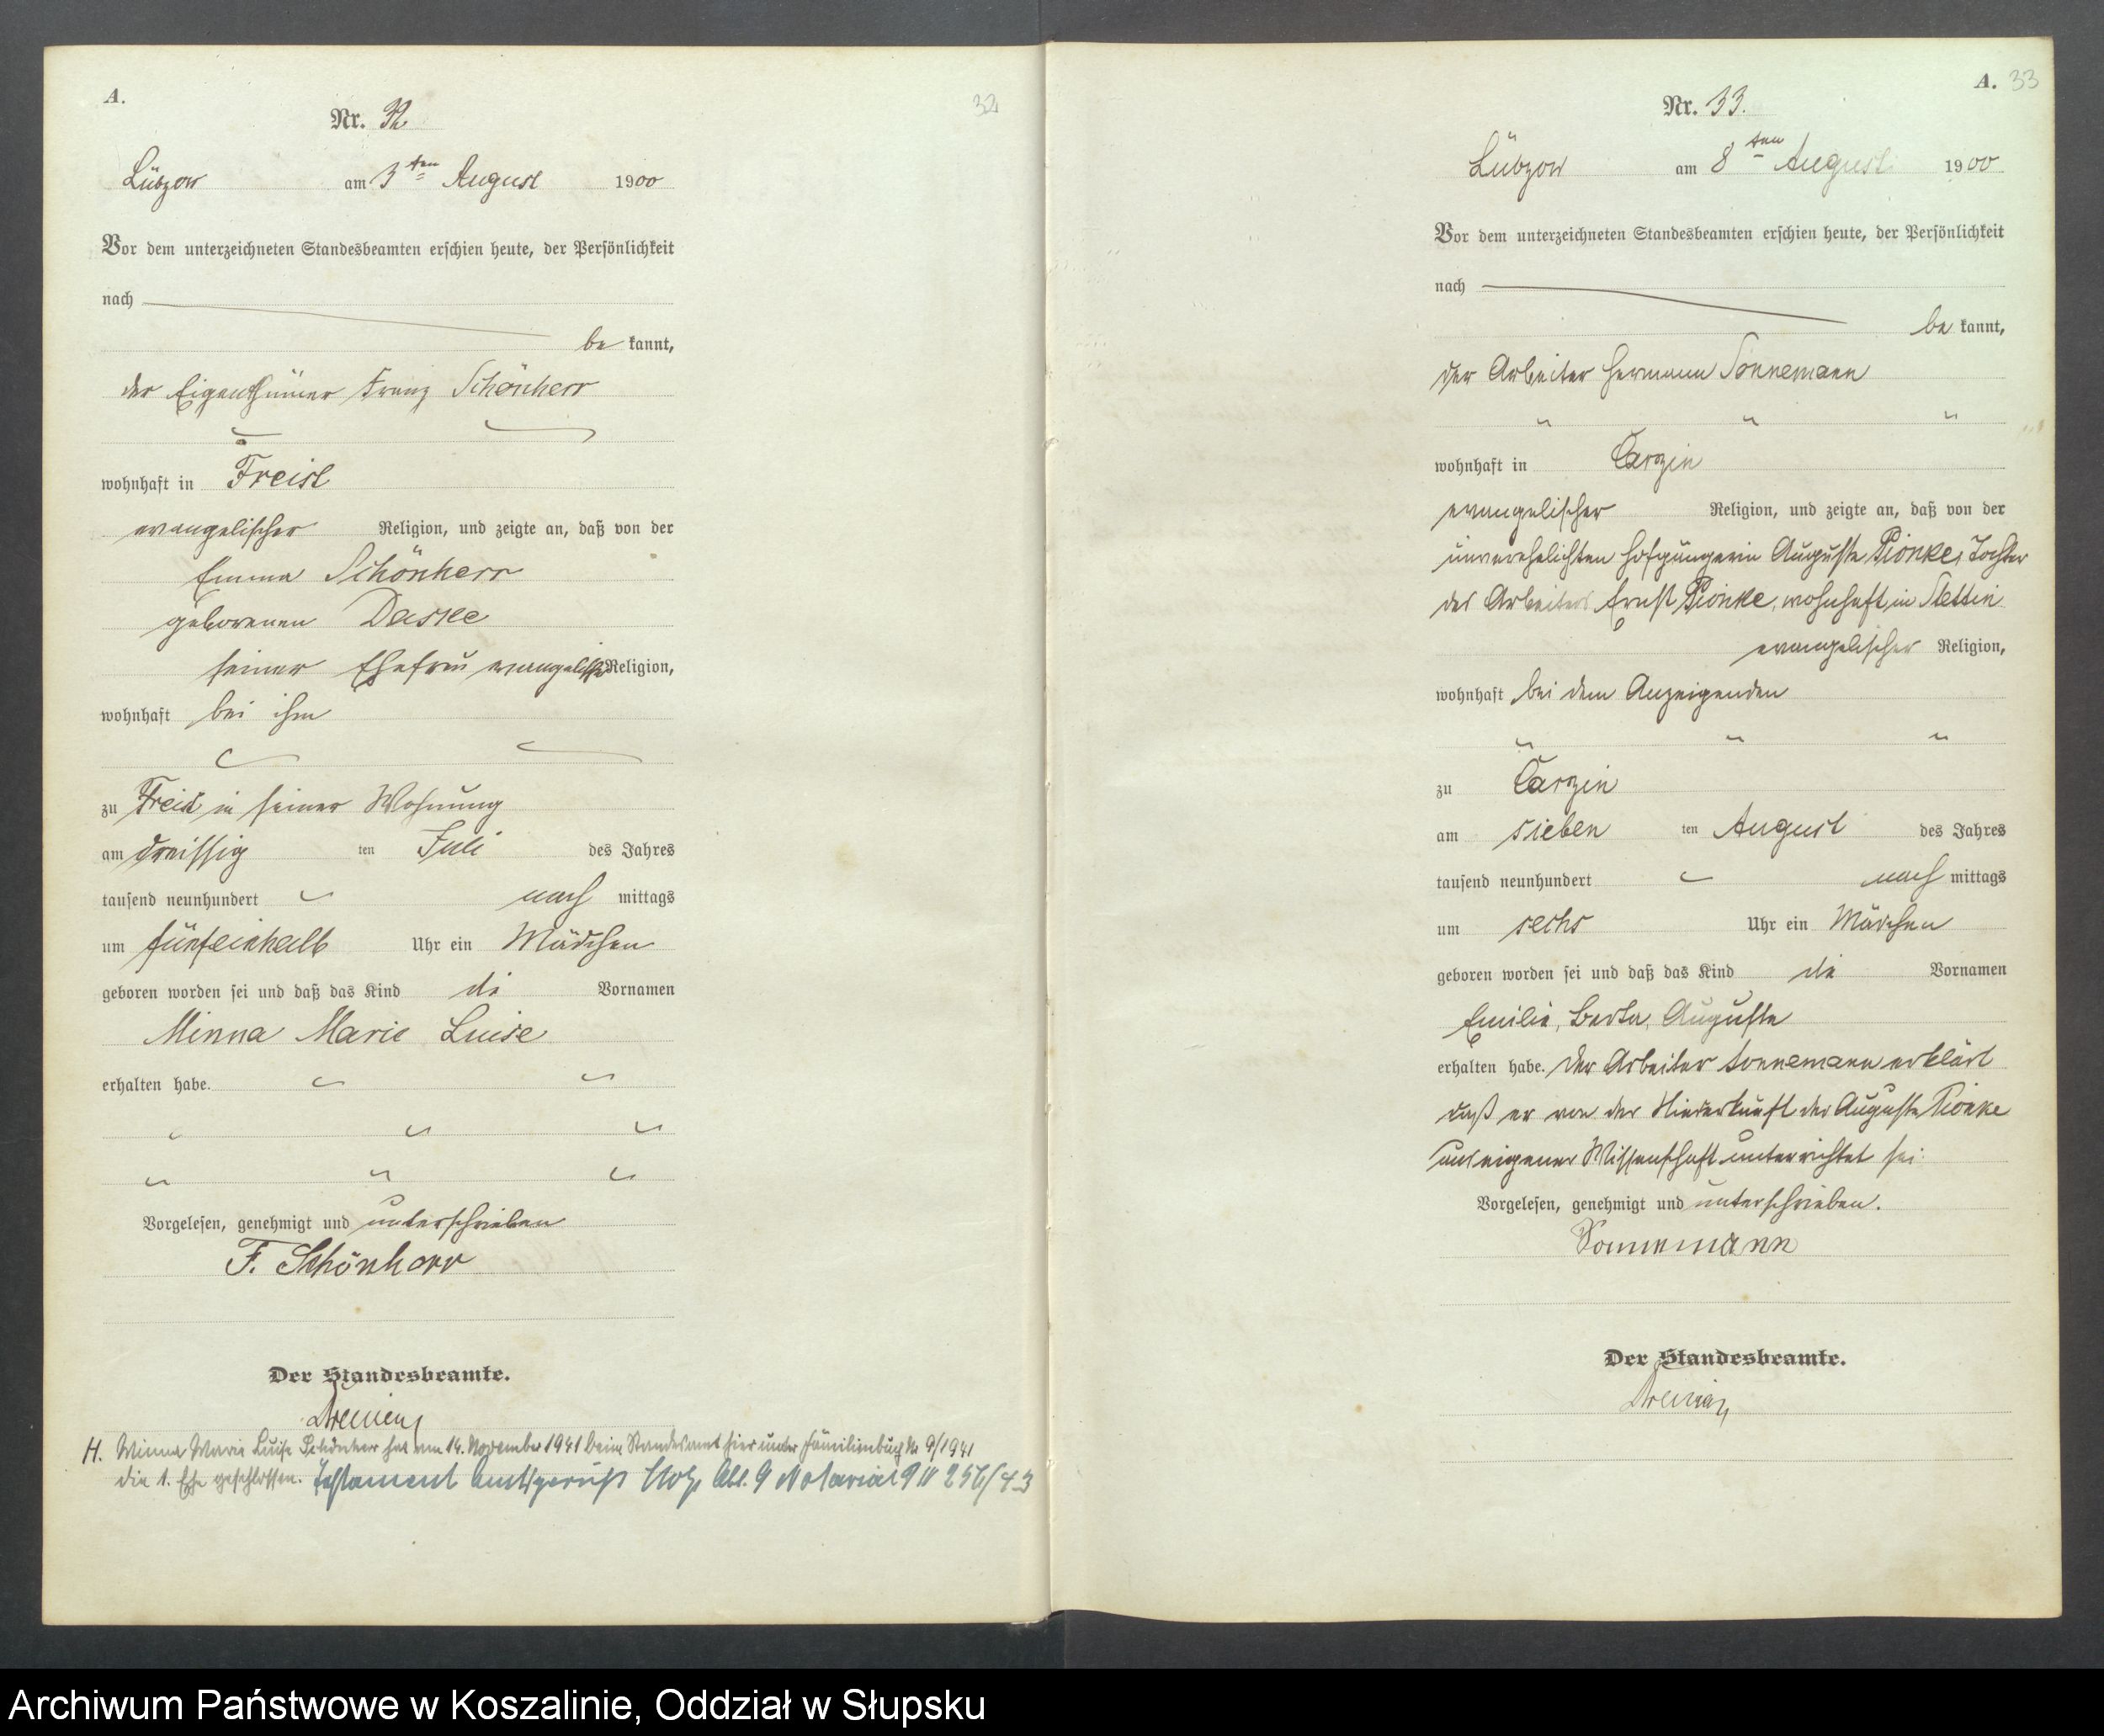 A.
32
Nr. 32
Lübzow am 3ten August 1900
Vor dem unterzeichneten Standesbeamten erschien heute, der Persönlichkeit
nach
be kannt,
der Eigenthümer Franz Schönherr
wohnhaft in Freist
evangelischer Religion, und zeigte an, daß von der
Emma Schönherr
geborenen Daske
seiner Ehefrau evangelischer Religion,
wohnhaft bei ihm
zu Freist in seiner Wohnung
am dreissig ten Juli des Jahres
tausend neunhundert nach mittags
um fünfeinhalb Uhr ein Mädchen
geboren worden sei und daß das Kind die Vornamen
Minna Marie Luise
erhalten habe.
Vorgelesen, genehmigt und unterschrieben
F. Schönherr
Der Standesbeamte.
H. Minna Marie Luise Schönherr hat am 14. November 1941 beim Standesamt hier unter Familienbuch Nr 9/1941
die 1. Ehe geschlossen. Testament Amtsgericht Stolp Abt. 9 Notariat 9 IV 256/43
A. 33
Nr. 33.
Lübzow am 8ten August 1900
Vor dem unterzeichneten Standesbeamten erschien heute, der Persönlichkeit
nach
be kannt,
der Arbeiter Hermann Sonnemann
wohnhaft in Carzin
evangelischer Religion, und zeigte an, daß von der
unverehelichten Hofgängerin Auguste Pionke, Tochter
des Arbeiters Ernst Pionke, wohnhaft in Stettin
evangelischer Religion,
wohnhaft bei dem Anzeigenden
zu Carzin
am sieben ten August des Jahres
tausend neunhundert nach mittags
um sechs Uhr ein Mädchen
geboren worden sei und daß das Kind die Vornamen
Emilie, Berta, Auguste
erhalten habe. Der Arbeiter Sonnemann erklärt
daß er von der Niederkunft der Auguste Pionke
aus eigener Wissenschaft unterrichtet sei.
Vorgelesen, genehmigt und unterschrieben.
Sonnemann
Der Standesbeamte.
Archiwum Państwowe w Koszalinie, Oddział w Słupsku